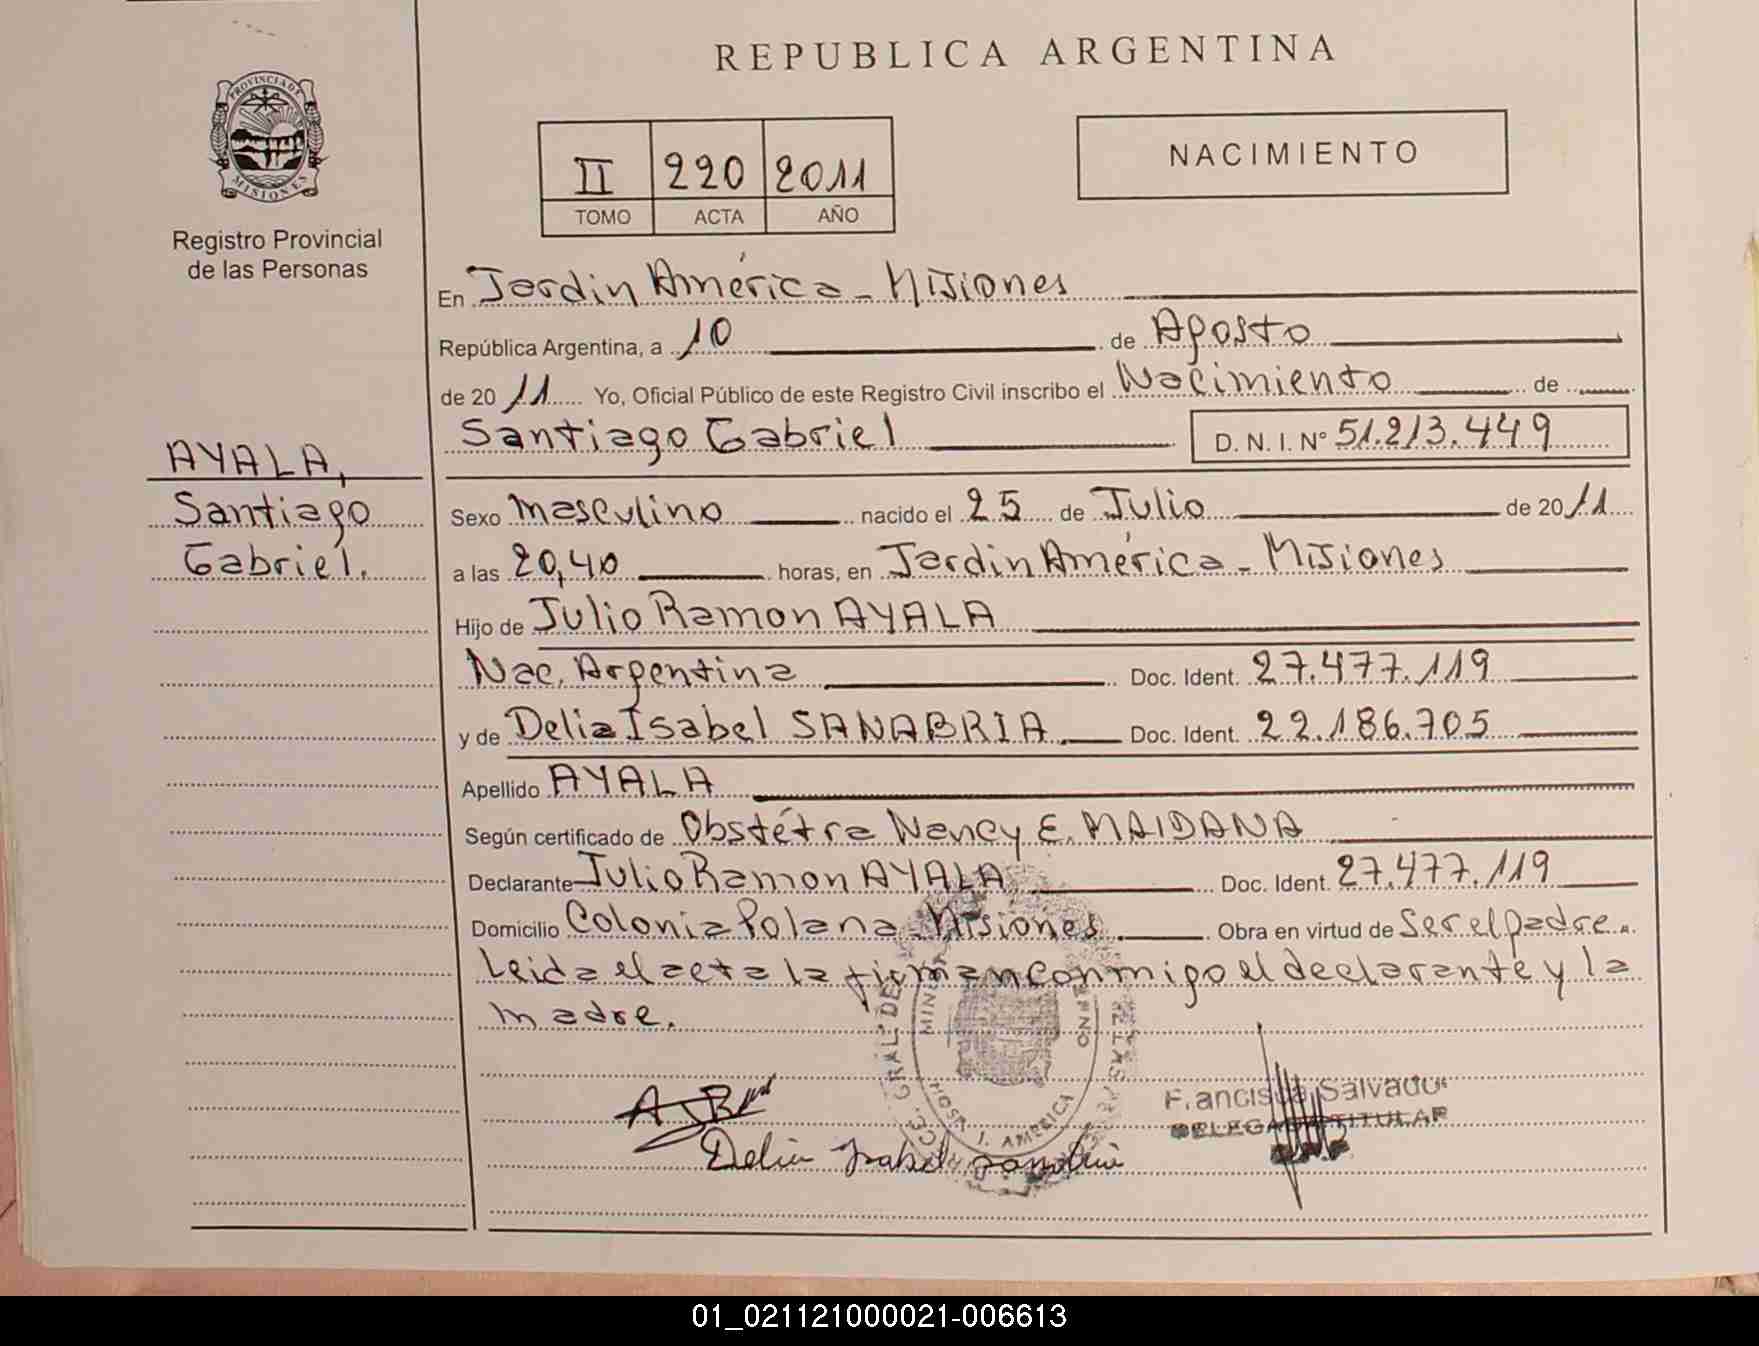 REPUBLICA ARGENTINA
PROVINCIA DE
MISIONES
Registro Provincial
de las Personas
II 220 2011
TOMO ACTA AÑO
NACIMIENTO
En Jardin América - Misiones
República Argentina, a 10 de Agosto
de 2011 Yo, Oficial Público de este Registro Civil inscribo el Nacimiento de
Santiago Gabriel D. N. I. N° 51.213.449
AYALA,
Santiago
Gabriel.
Sexo Masculino nacido el 25 de Julio de 2011
a las 20,40 horas, en Jardin América - Misiones
Hijo de Julio Ramon AYALA
Nac. Argentina Doc. Ident. 27.477.119
y de Delia Isabel SANABRIA Doc. Ident. 22.186.705
Apellido AYALA
Según certificado de Obstétra Nancy E. MAIDANA
Declarante Julio Ramon AYALA Doc. Ident. 27.477.119
Domicilio Colonia Polana - Misiones Obra en virtud de Ser el padre.
Leida el acta la firman conmigo el declarante y la
madre.
GRAL. DE
AMERICA
Delia Isabel Sanabria
Francisca Salvador
DELEGADO TITULAR
01_021121000021-006613